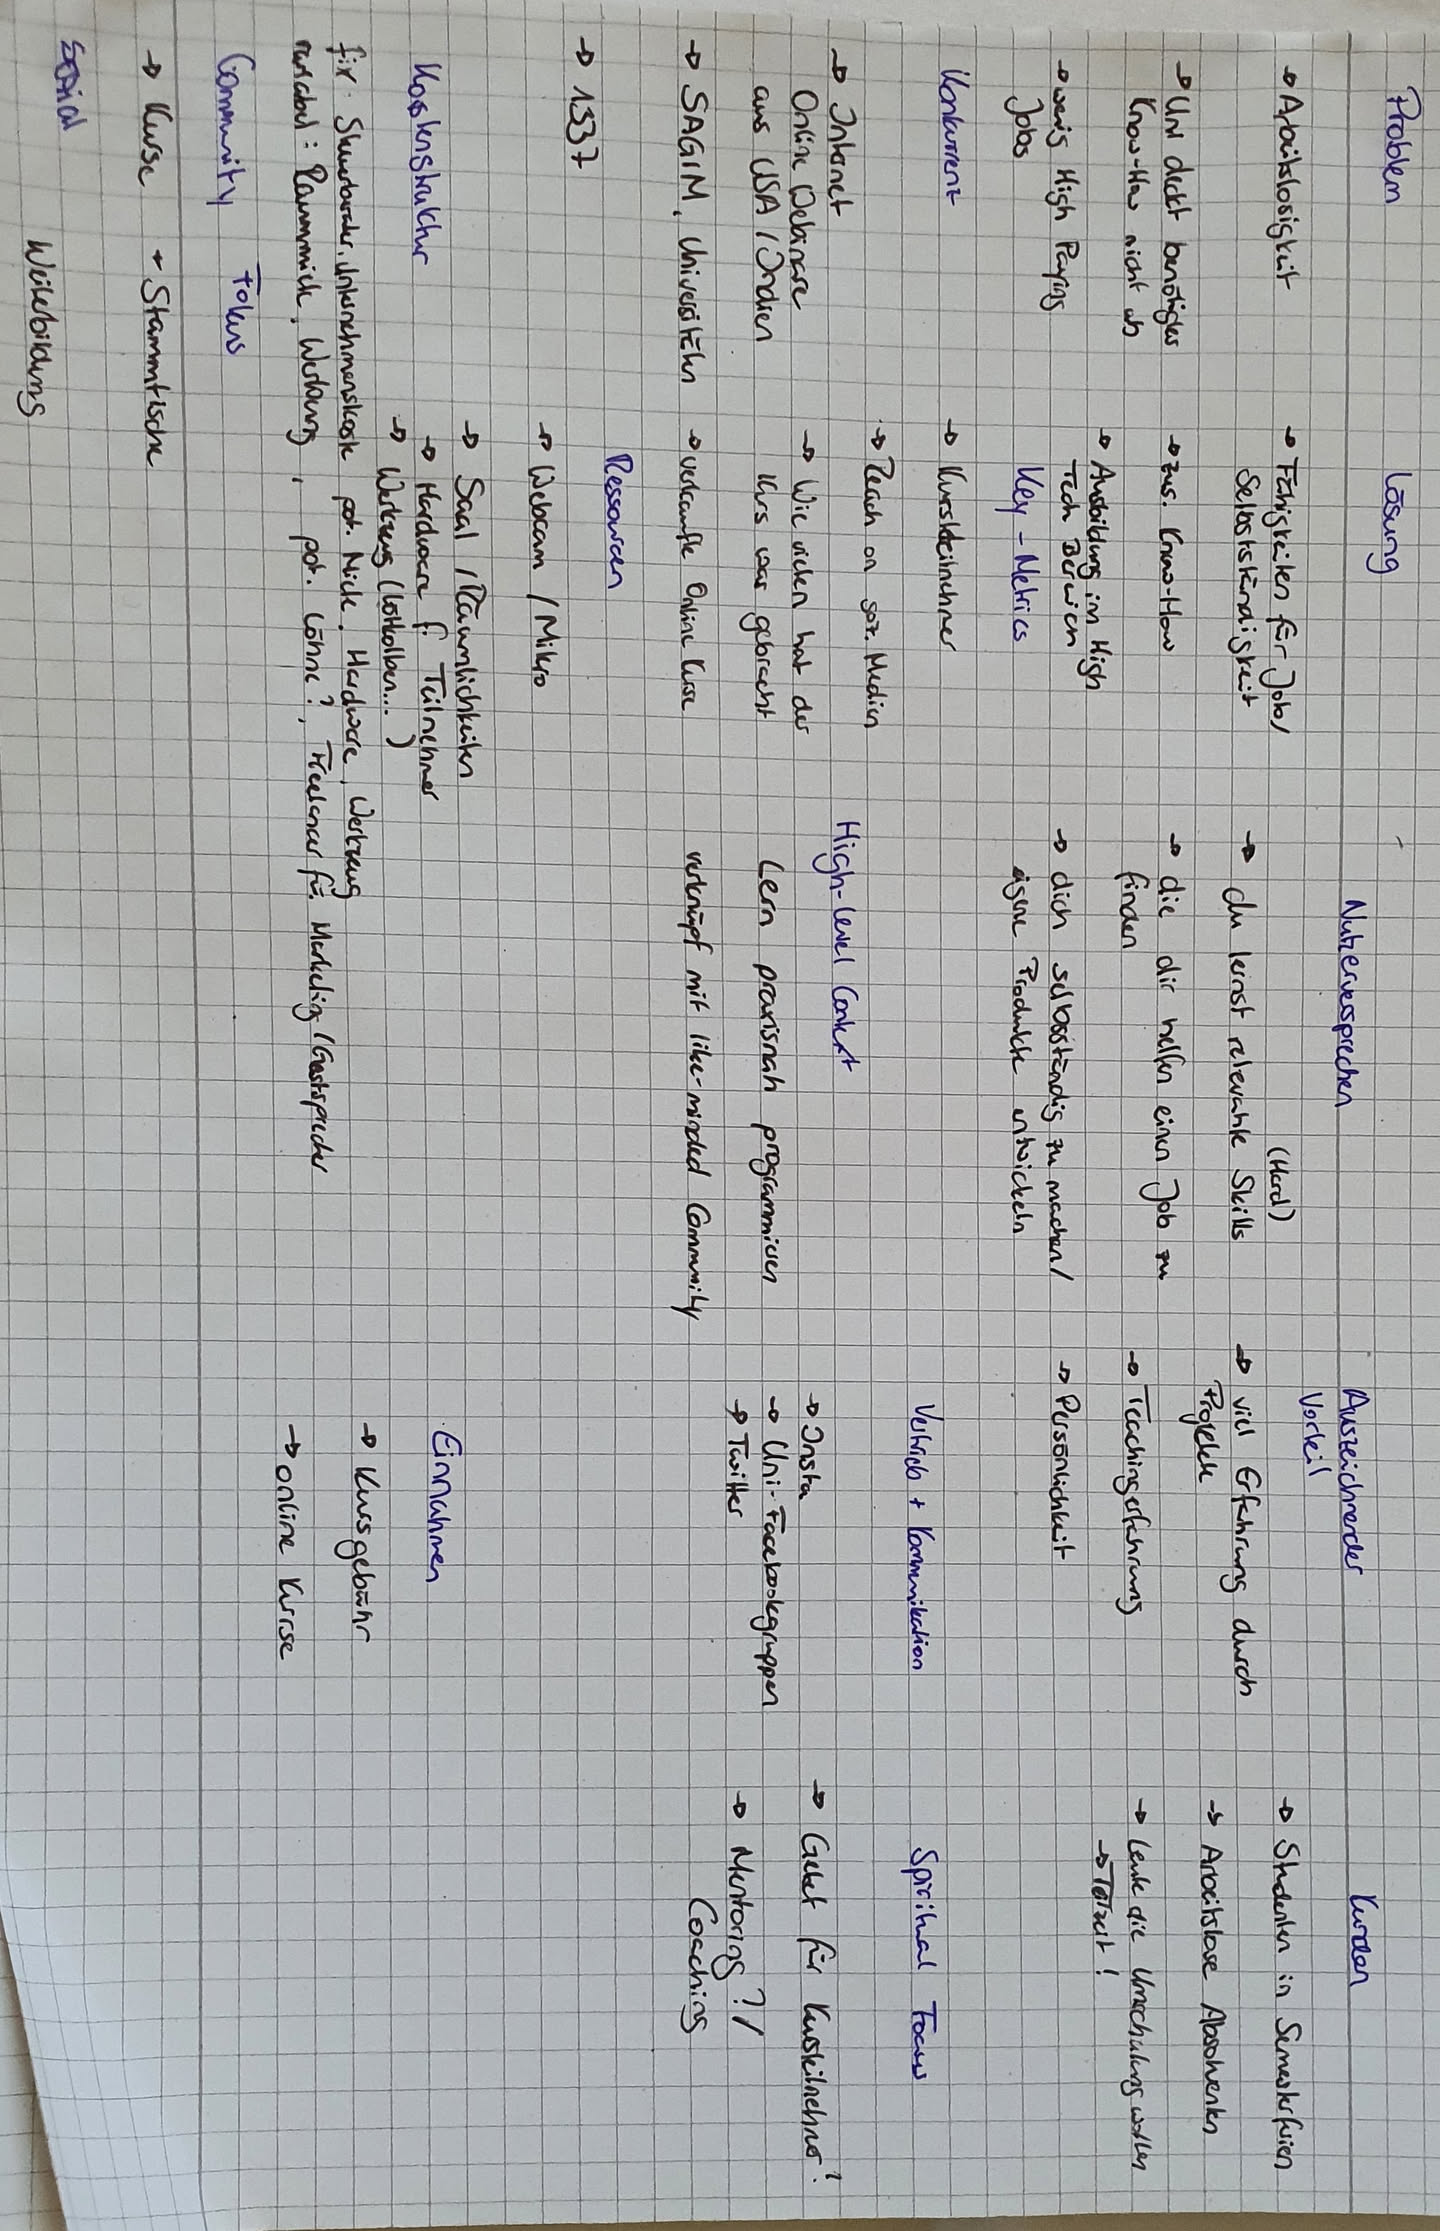 Problem
→ Arbeitslosigkeit
→ Uni deckt benötigtes
Know-How nicht ab
→ wenig High Paying
Jobs
Konkurrenz
→ Internet
Online Webinare
aus USA / Indien
→ SAGIM, Universitäten
→ 1337
Lösung
→ Fähigkeiten für Job/
Selbstständigkeit
→ zus. Know-How
→ Ausbildung im High
Tech Bereich
Key-Metrics
→ Kursteilnehmer
→ Reach on soz. Medien
→ Wie vielen hat der
Kurs was gebracht
→ verkaufte Online Kurse
Ressourcen
→ Webcam / Mikro
→ Saal / Räumlichkeiten
→ Hardware f. Teilnehmer
→ Werkzeug (Lötkolben...)
Nutzerversprechen
(Hard)
→ du lernst relevante Skills
→ die dir helfen einen Job zu
finden
→ dich selbstständig zu machen/
eigene Produkte entwickeln
High-Level Context
Lern praxisnah programmieren
verknüpf mit like-minded Community
Auszeichnender
Vorteil
→ viel Erfahrung durch
Projekte
→ Teachingerfahrung
→ Persönlichkeit
Vertrieb + Kommunikation
→ Insta
→ Uni-Facebookgruppen
→ Twitter
Kunden
→ Studenten in Semesterferien
→ Arbeitslose Absolventen
→ Leute die Umschulung wollen
→ Teilzeit!
Spiritual Focus
→ Gebet für Kursteilnehmer?
→ Mentoring?/
Coaching
Kostenstruktur
fix: Steuerberater, Unternehmenskosten pot. Miete, Hardware, Werkzeug
variabel: Raummiete, Werbung, pot. Löhne?, Freelancer für Marketing/Gastsprecher
Einnahmen
→ Kursgebühr
→ online Kurse
Community Fokus
→ Kurse + Stammtische
Social
Weiterbildung